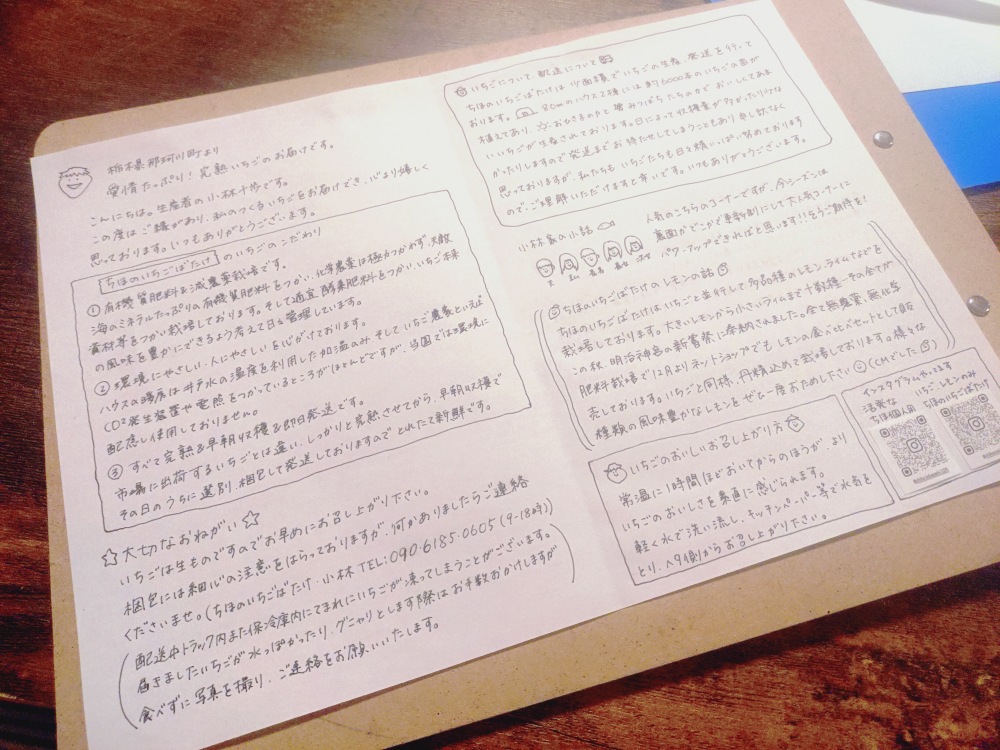 栃木県那珂川町より
愛情たっぷり！完熟いちごのお届けです。
こんにちは。生産者の小林千歩です。
この度はご縁があり、私のつくるいちごをお届けでき、心より嬉しく
思っております。いつもありがとうございます。
ちほのいちごばたけのいちごのこだわり
①有機質肥料&減農薬栽培です。
海のミネラルたっぷりの有機質肥料をつかい、化学農薬は極力つかわず、天敵
資材等をつかい栽培しております。そして適宜酵素肥料をつかい、いちご本来
の風味を豊かにできるよう考えて日々管理しています。
②環境にやさしい・人にやさしいを心がけております。
ハウスの暖房は井戸水の温度を利用した加温のみ。そして、いちご農家といえば
CO²発生装置や電照をつかっているところがほとんどですが、当園では環境に
配慮し使用しておりません。
③すべて完熟&早朝収穫&即日発送です。
市場に出荷するいちごとは違い、しっかりと完熟させてから、早朝収穫で
その日のうちに選別、梱包して発送しておりますのでとれたて新鮮です。
☆大切なおねがい☆
いちごは生ものですのでお早めにお召し上がり下さい。
梱包には細心の注意をはらっておりますが、何かありましたらご連絡
くださいませ。(ちほのいちごばたけ・小林 TEL:090-6185-0605(9-18時))
配送中トラック内また保冷庫内にてまれにいちごが凍ってしまうことがございます。
届きましたいちごが水っぽかったり、グニャリとします際はお手数おかけしますが
食べずに写真を撮り、ご連絡をお願いいたします。
いちごについて、配送について
ちほのいちごばたけは少面積でいちごの生産、発送を行って
おります。80mのハウス2棟には約6000本のいちごの苗が
植えてあり、おひさまの力と蜜みつばちたちの力でおいしくてあま
いいちごが生産されております。日によって収穫量が多かったり少な
かったりしますので発送までお待たせしてしまうこともあり申し訳なく
思っておりますが、私たちも、いちごたちも日々精いっぱい努めております
ので、ご理解いただけますと幸いです。いつもありがとうございます。
小林家の小話
人気のこちらのコーナーですが、今シーズンは
裏面がでかでか
大人気コーナーに
パワーアップできればと思います!!
ご期待を！
ちほのいちごばたけのレモンの話
ちほのいちごばたけはいちごと並行して多品種のレモン、ライムなどを
栽培しております。大きいレモンから小さいライムまで十数種。その全てが
この秋、明治神宮の新嘗祭に奉納されました。全て無農薬、無化学
肥料栽培で12月よりネットショップでもレモンの食べ比べセットとして販
売しております。いちご同様、丹精込めて栽培しております。様々な
種類の風味豊かなレモンをぜひ一度お ため下さい (CMでした)
いちごのおいしいお召し上がり方
常温に1時間ほどおいてからのほうが、より
いちごのおいしさを素直に感じられます。
軽く水で洗い流し、キッチンペーパー等で水気を
とり、ヘタ側からお召し上がり下さい。
インスタグラムやってます
活発な
ちほ個人用
いちご、レモンのみ
ちほのいちごばたけ